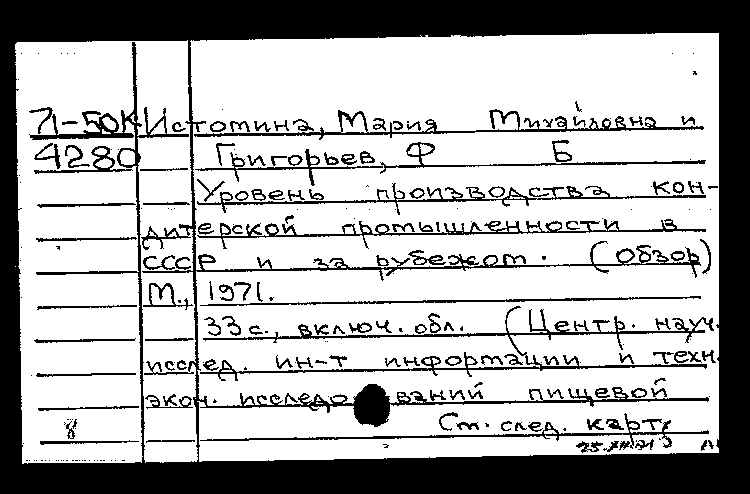 71-50К Истомина, Мария Михайловна и
4280 Григорьев, Ф Б
Уровень производства кон-
дитерской промышленности в
СССР и за рубежом. (Обзор)
М., 1971.
33 с., включ. обл. (Центр. науч.
исслед. ин-т информации и техн.
экон. исследований пищевой
См. след. карт.
8